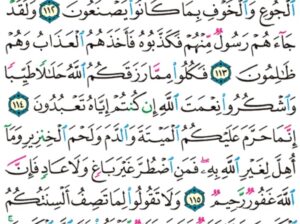 ٱلْجُوعِ وَٱلْخَوْفِ بِمَا كَانُوا۟ يَصْنَعُونَ ١١٢ وَلَقَدْ
جَآءَهُمْ رَسُولٌ مِّنْهُمْ فَكَذَّبُوهُ فَأَخَذَهُمُ ٱلْعَذَابُ وَهُمْ
ظَٰلِمُونَ ١١٣ فَكُلُوا۟ مِمَّا رَزَقَكُمُ ٱللَّهُ حَلَٰلًا طَيِّبًا
وَٱشْكُرُوا۟ نِعْمَتَ ٱللَّهِ إِن كُنتُمْ إِيَّاهُ تَعْبُدُونَ ١١٤
إِنَّمَا حَرَّمَ عَلَيْكُمُ ٱلْمَيْتَةَ وَٱلدَّمَ وَلَحْمَ ٱلْخِنزِيرِ وَمَآ
أُهِلَّ لِغَيْرِ ٱللَّهِ بِهِۦ فَمَنِ ٱضْطُرَّ غَيْرَ بَاغٍ وَلَا عَادٍ فَإِنَّ
ٱللَّهَ غَفُورٌ رَّحِيمٌ ١١٥ وَلَا تَقُولُوا۟ لِمَا تَصِفُ أَلْسِنَتُكُمُ